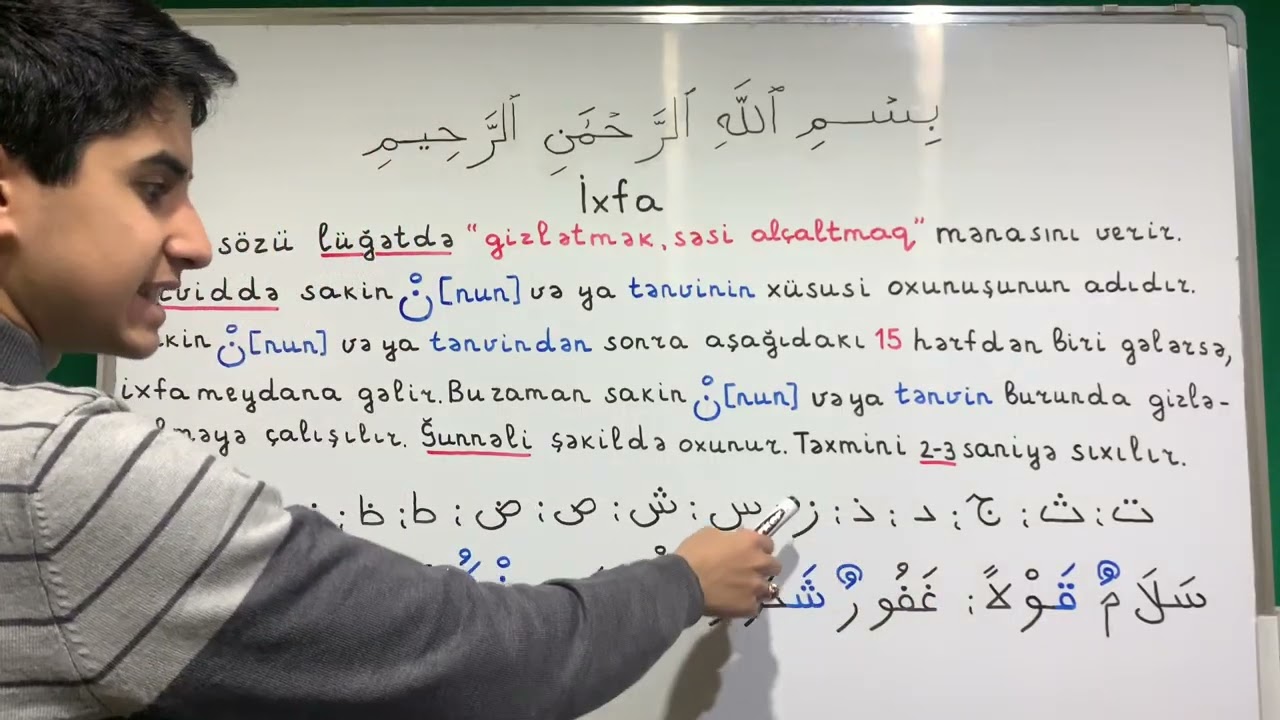 بِسْمِ ٱللَّهِ ٱلرَّحْمَٰنِ ٱلرَّحِيمِ
İxfa
sözü lüğətdə "gizlətmək, səsi alçaltmaq" mənasını verir.
sakin نْ [nun] və ya tənvinin xüsusi oxunuşunun adıdır.
نْ [nun] və ya tənvindən sonra aşağıdakı 15 hərfdən biri gələrsə,
ixfa meydana gəlir. Bu zaman sakin نْ [nun] və ya tənvin burunda gizlə-
çalışılır. Ğunnəli şəkildə oxunur. Təxmini 2-3 saniyə sıxılır.
ت ; ث ; ج ; د ; ذ ; ز ; س ; ش ; ص ; ض ; ط ; ظ ;
سَلَامٌ قَوْلاً ; غَفُورٌ